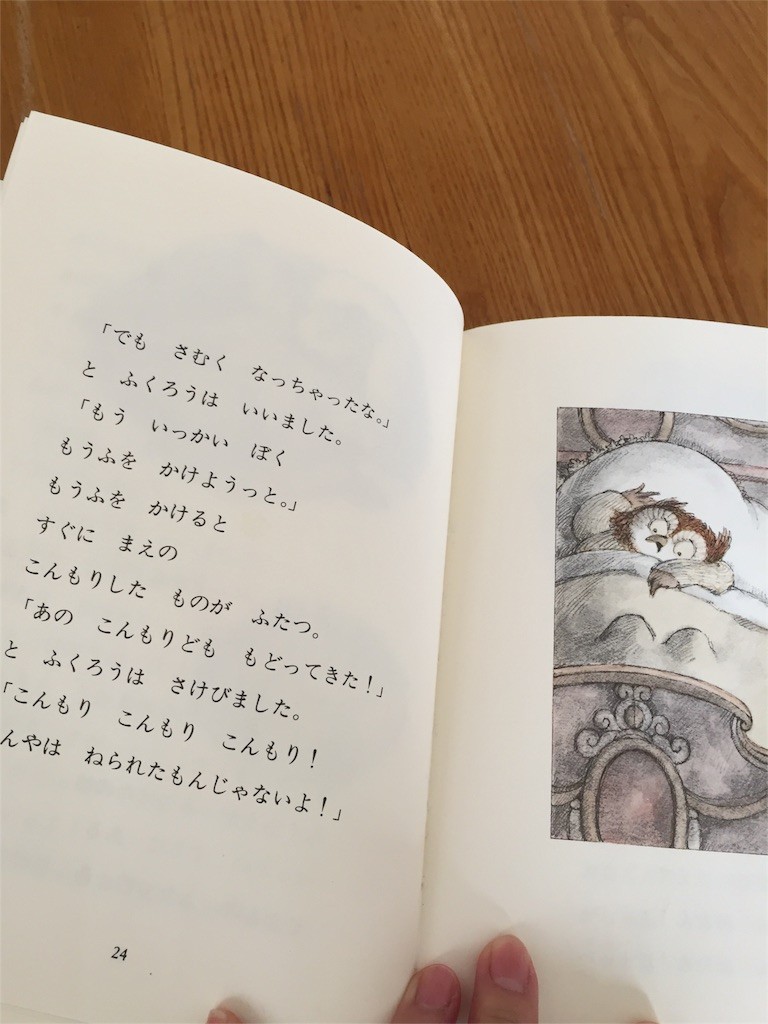 「でも　さむく　なっちゃったな。」
と　ふくろうは　いいました。
「もう　いっかい　ぼく
もうふを　かけようっと。」
もうふを　かけると
すぐに　まえの
こんもりした　ものが　ふたつ。
「あの　こんもりども　もどってきた！」
と　ふくろうは　さけびました。
「こんもり　こんもり　こんもり！
んやは　ねられたもんじゃないよ！」
24